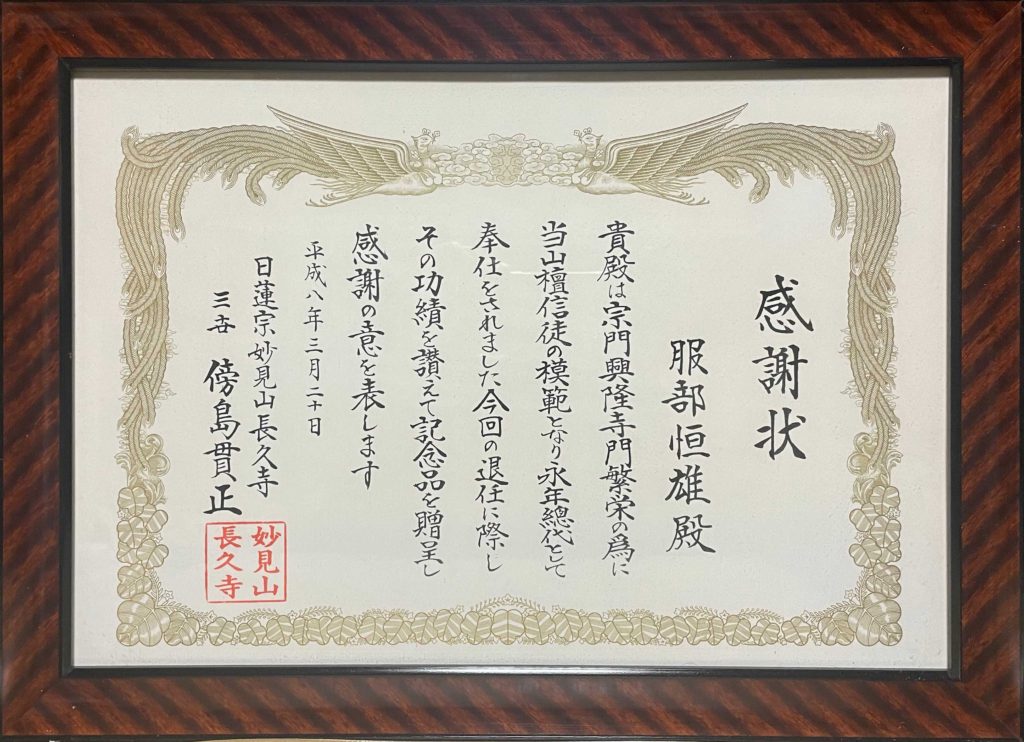 感謝状
服部恒雄殿
貴殿は宗門興隆寺門繁栄の為に
当山檀信徒の模範となり永年總代として
奉仕をされました今回の退任に際し
その功績を讃えて記念品を贈呈し
感謝の意を表します
平成八年三月二十日
日蓮宗妙見山長久寺
三吉 傍島貫正
妙見山
長久寺